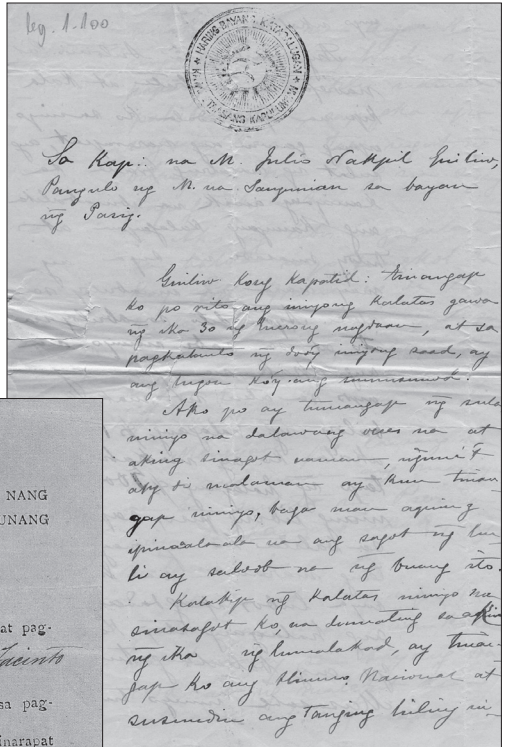 leg. 1.100
HARING BAYANG KATAGALUGAN
Sa Kap∴ na M. Julio Nakpil Giiliw,
Pangulo ng M. na Sangunian sa bayan
ng Pasig.
Giniliw Kong Kapatid: tinangap
ko po rito ang iniyong Kalatas gawa
ng ika 30 ng merong nagdaan, at sa
pagkatanto ng dooy iniyong saad, ay
ang tugon Ko'y ang sumusunod:
Ako po ay tumangap ng sulat
ninyo na dalawang veces na at
aking sinagot naman, nguni't
at di malaman ay kun tinan-
gap ninyo, baga man aking
ipinaalaala na ang sagot ng hu-
li ay saloob na ng buang ito.
Kalakip ng Kalatas ninyo na
sinasagot Ko, na dumating sa akin
ng ika ng lumalakad, ay tinan-
gap Ko ang Himno Nacional at
susundin ang tanging biling ni-
NANG
UNANG
at pag-
Jacinto
sa pag-
inarapat